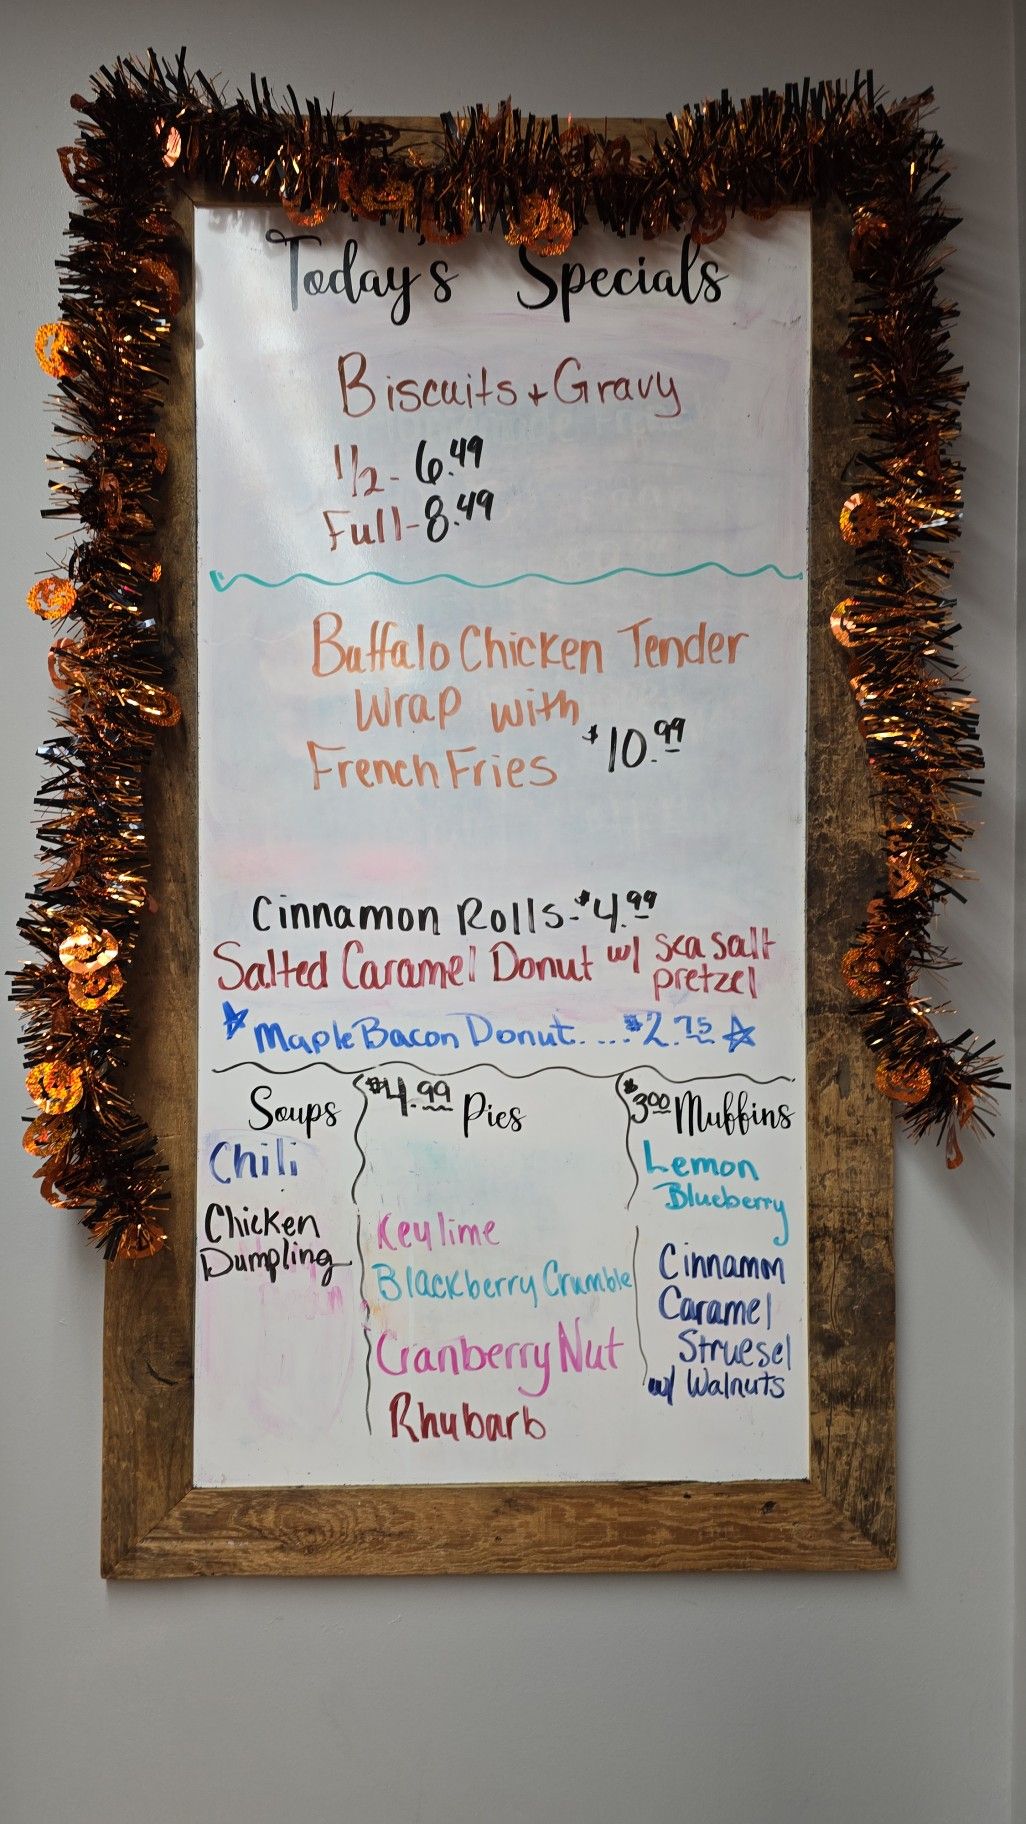 Today's Specials
Biscuits + Gravy
1/2 - 6.49
Full - 8.49
Buffalo Chicken Tender
Wrap with
French Fries $10.99
Cinnamon Rolls - $4.99
Salted Caramel Donut w/ sea salt
pretzel
Maple Bacon Donut..... $2.75
Soups
Chili
Chicken
Dumpling
$4.99 Pies
Keylime
Blackberry Crumble
Cranberry Nut
Rhubarb
$3.00 Muffins
Lemon
Blueberry
Cinnamm
Caramel
Struesel
w/ Walnuts